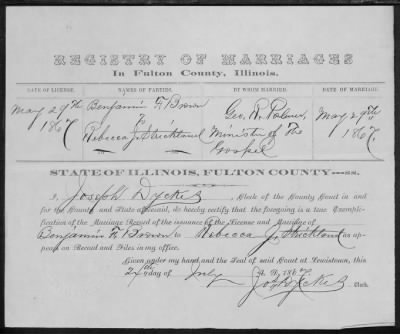 REGISTRY OF MARRIAGES
In Fulton County, Illinois.
DATE OF LICENSE. NAMES OF PARTIES. BY WHOM MARRIED. DATE OF MARRIAGE.
May 29th Benjamin F. Brown Geo. R. Palmer May 29th
1867 To Minister of the 1867.
Rebecca J. Strickland Gospel
STATE OF ILLINOIS, FULTON COUNTY—ss.
I, Joseph Dyckes Clerk of the County Court in and
for the County and State aforesaid, do hereby certify that the foregoing is a true Exempli-
fication of the Marriage Record of the issuance of the License and Marriage of
Benjamin F. Brown to Rebecca J. Strickland as ap-
pears on Record and Files in my office.
Given under my hand and the Seal of said Court at Lewistown, this
day of July A. D. 1867
Jos Dyckes Clerk.